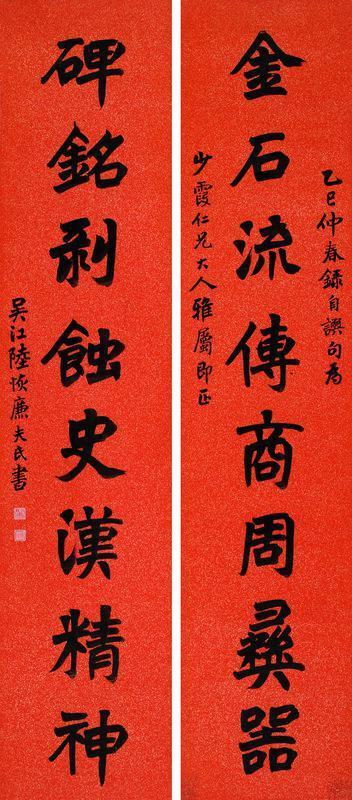 乙巳仲春録自譔句為
金石流傳商周彝器
少霞仁兄大人雅屬即正
碑銘剝蝕史漢精神
吴江陸恢廉夫氏書